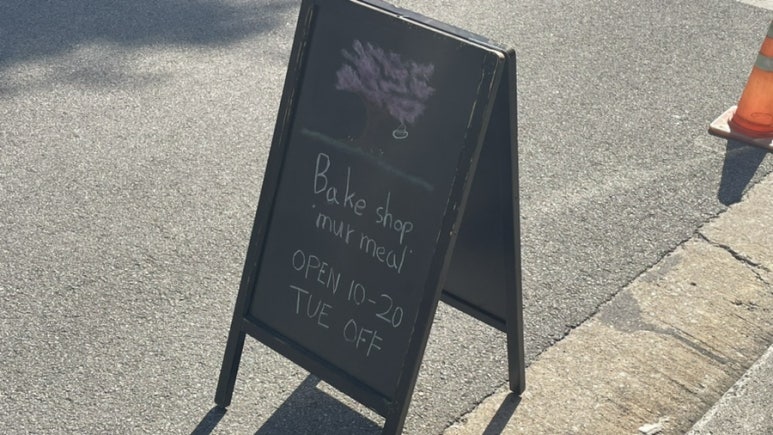 Bake shop
'mur meal'
OPEN 10-20
TUE OFF